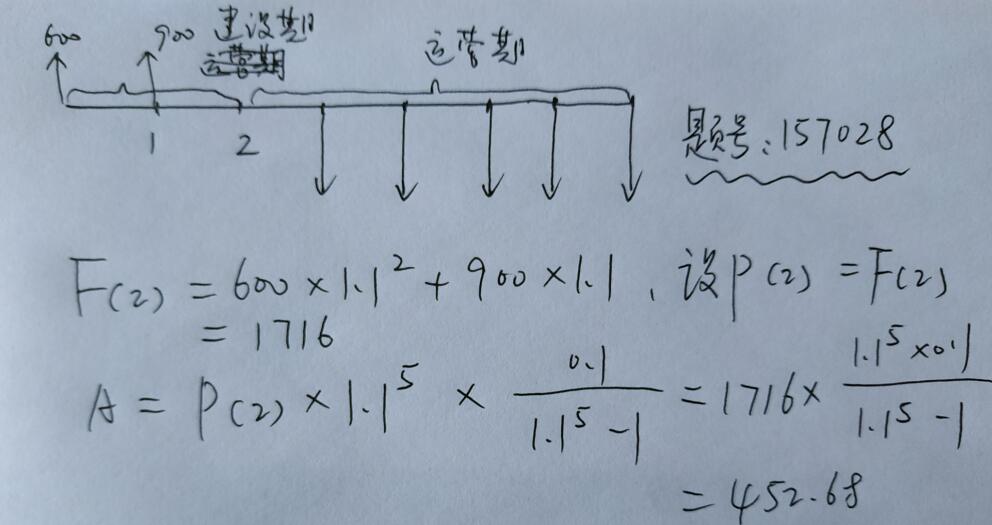 600 900 建设期 运营期
运营期
1 2 题号:157028
F(2) = 600 × 1.1² + 900 × 1.1, 设P(2) = F(2)
= 1716
A = P(2) × 1.1⁵ × 0.1/(1.1⁵ - 1) = 1716 × (1.1⁵ × 0.1)/(1.1⁵ - 1)
= 452.68